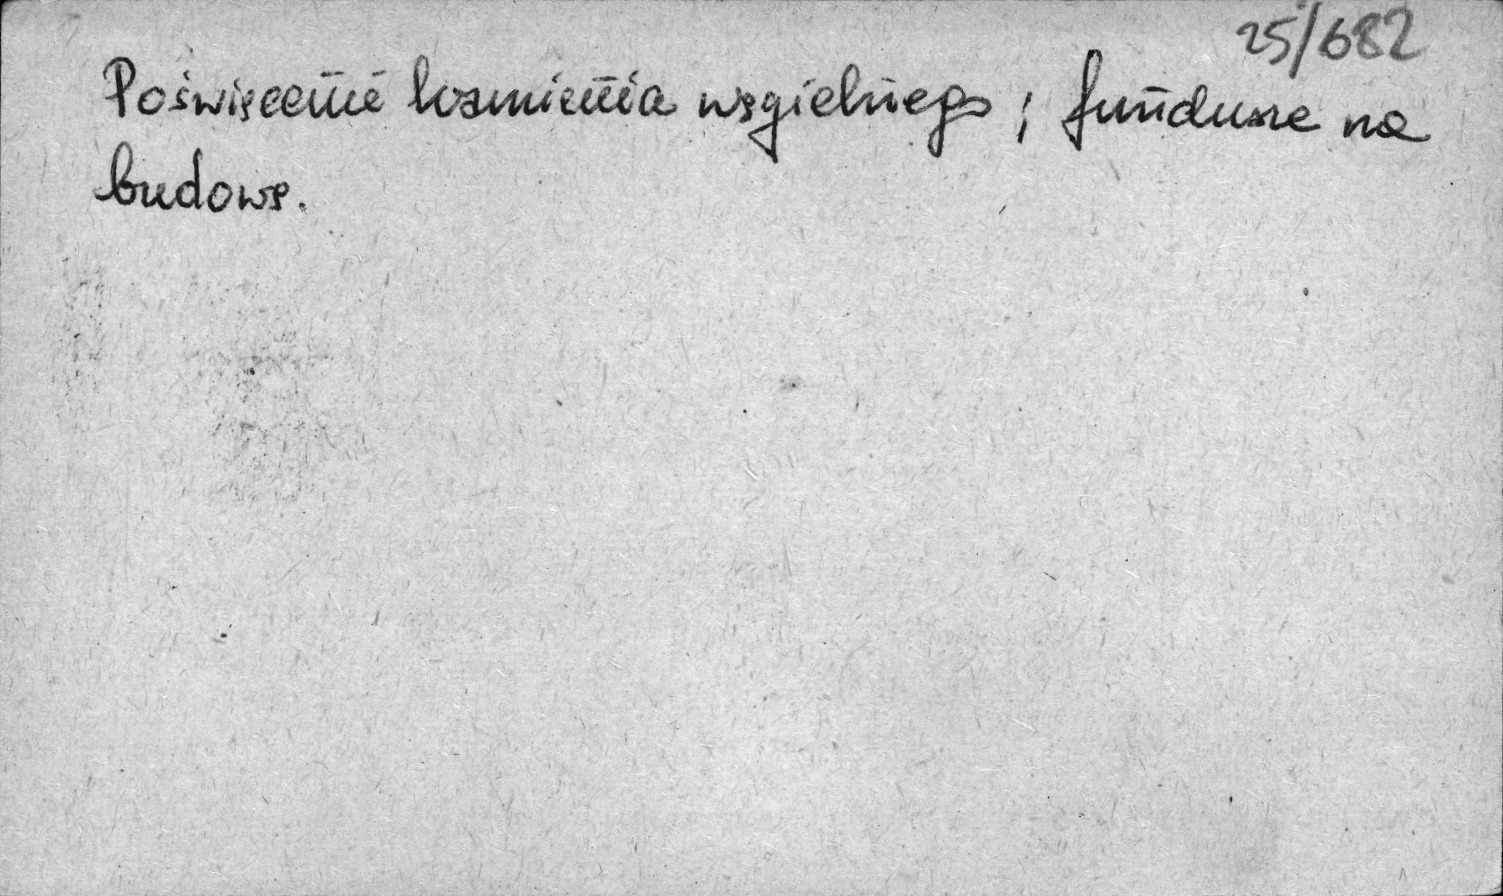 25/682
Poświęcenie kamienia węgielnego; fundusze na
budowę.